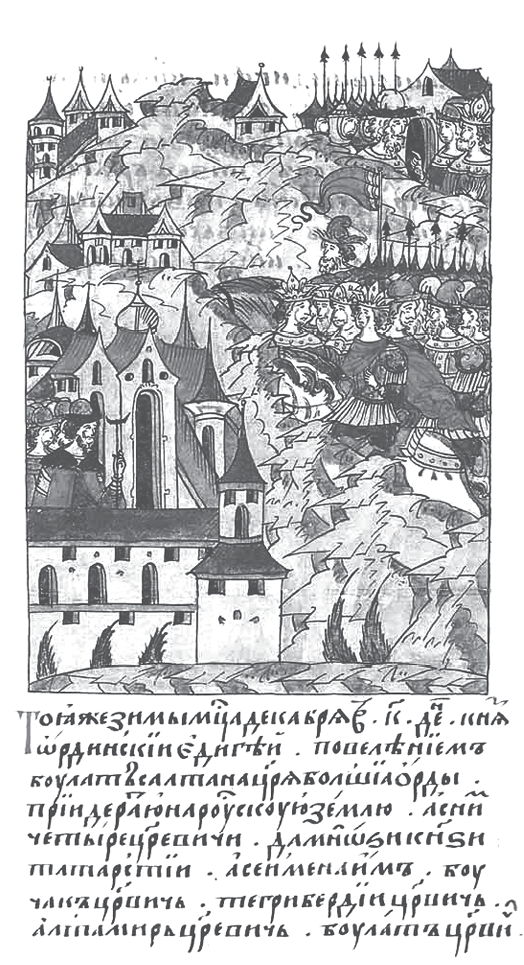 Тогѡ́же зимы мц҃а декабря в҃ . к҃ . дн҃ь . кн҃ѧ
ѡ҆рдинскїи є҆диге́й . повеле́нїемъ
боулатъ салтана цр҃я болшїа ѻ҆рды .
прїиде ра́тїю на роу́скоую зе́млю . а҆с ни
четыре цр҃евичи . да мно́ѕи кн҃ѕи
татарстїи . а҆ се и҆мена и҆́мъ . боу
чакъ цр҃вичь . тегрибердїи цр҃вичь .
алтамирь цр҃евичь . боулатъ цр҃вий .